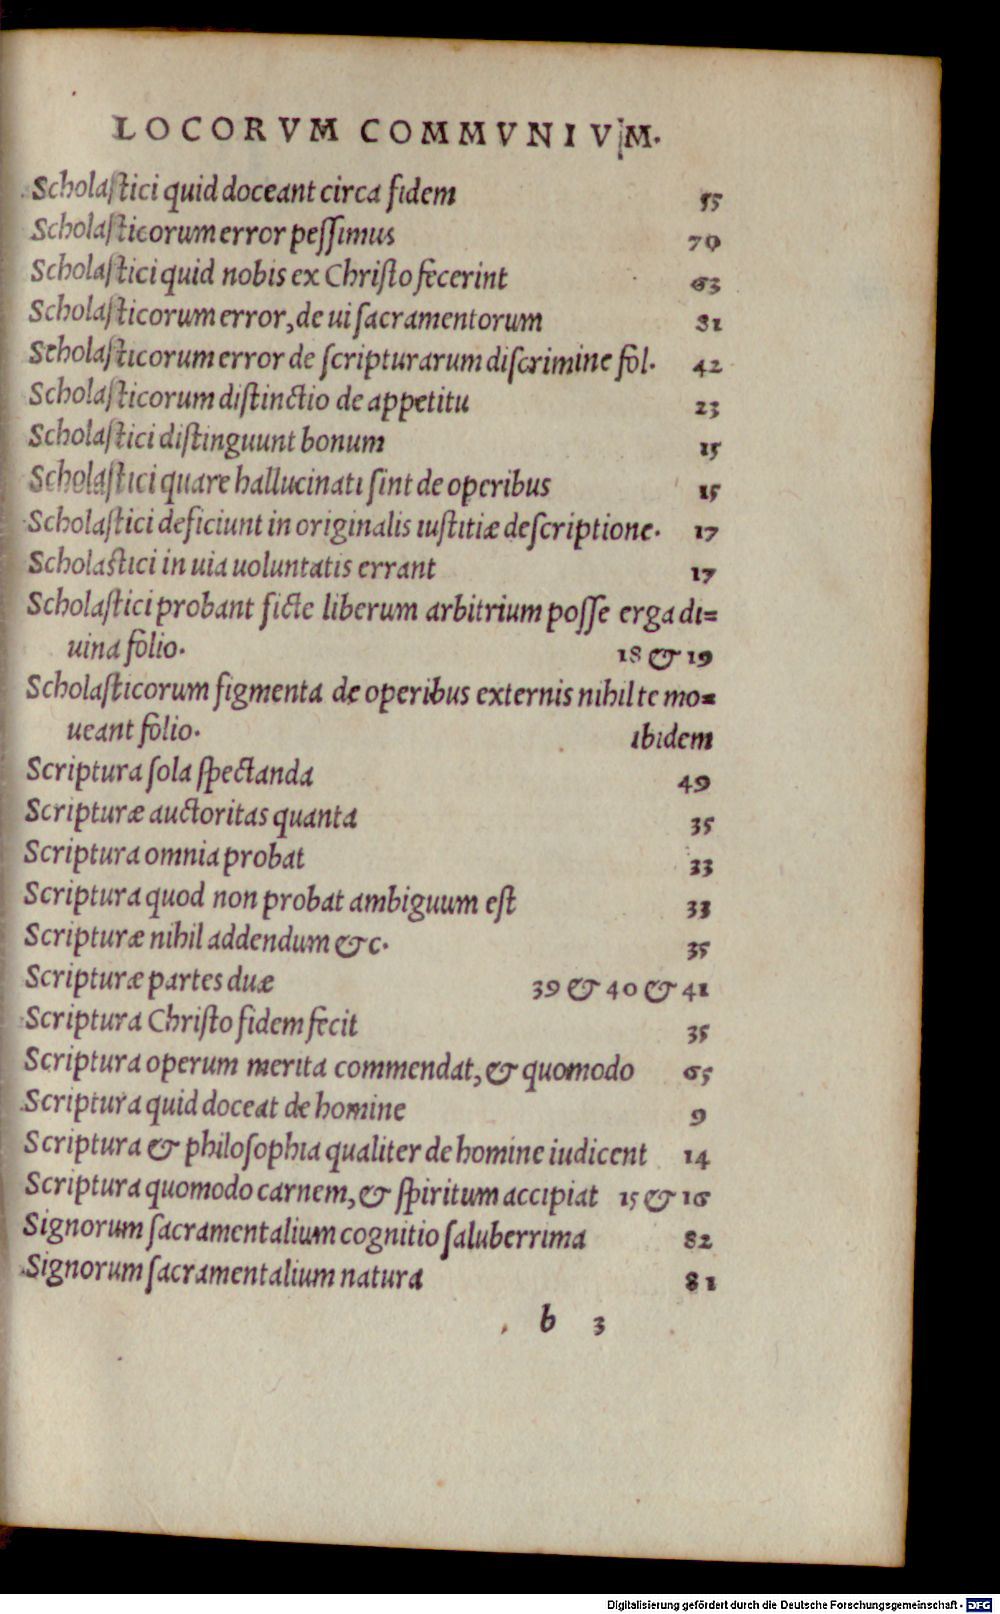 LOCORVM COMMVNIVM.
Scholaſtici quid doceant circa fidem 55
Scholaſticorum error peſſimus 70
Scholaſtici quid nobis ex Chriſto fecerint 63
Scholaſticorum error, de ui ſacramentorum 81
Scholaſticorum error de ſcripturarum diſcrimine fol. 42
Scholaſticorum diſtinctio de appetitu 23
Scholaſtici diſtinguunt bonum 15
Scholaſtici quare hallucinati ſint de operibus 15
Scholaſtici deficiunt in originalis iuſtitiæ deſcriptione. 17
Scholastici in uia uoluntatis errant 17
Scholaſtici probant ficte liberum arbitrium poſſe erga di=
uina folio. 18 & 19
Scholaſticorum figmenta de operibus externis nihil te mo=
ueant folio. ibidem
Scriptura ſola ſpectanda 49
Scripturæ auctoritas quanta 35
Scriptura omnia probat 33
Scriptura quod non probat ambiguum eſt 33
Scripturæ nihil addendum &c. 35
Scripturæ partes duæ 39 & 40 & 41
Scriptura Chriſto fidem fecit 35
Scriptura operum merita commendat, & quomodo 65
Scriptura quid doceat de homine 9
Scriptura & philoſophia qualiter de homine iudicent 14
Scriptura quomodo carnem, & ſpiritum accipiat 15 & 16
Signorum ſacramentalium cognitio ſaluberrima 82
Signorum ſacramentalium natura 81
b 3
Digitalisierung gefördert durch die Deutsche Forschungsgemeinschaft - DFG